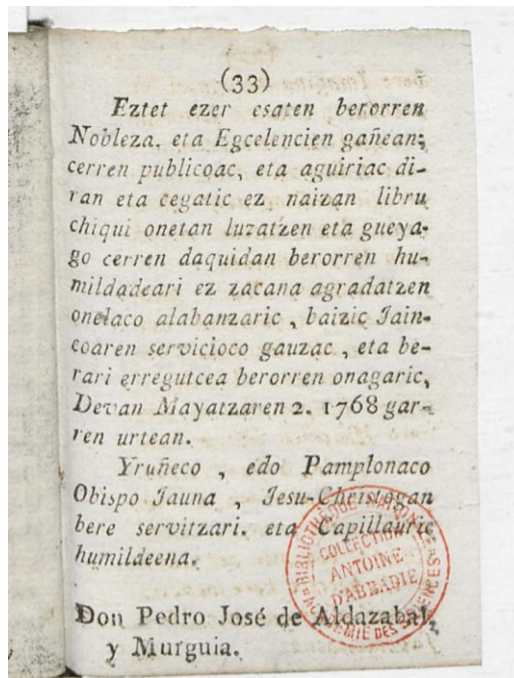 (33)
Eztet ezer esaten berorren
Nobleza. eta Egcelencien gañean;
cerren publicoac, eta aguiriac di-
ran eta cegatic ez naizan libru
chiqui onetan luzatzen eta gueya-
go cerren daquidan berorren hu-
mildadeari ez zacana agradatzen
onelaco alabanzaric, baizic Jain-
coaren servicioco gauzac, eta be-
rari erregutcea berorren onagaric,
Devan Mayatzaren 2. 1768 gar-
ren urtean.
Yruñeco, edo Pamplonaco
Obispo Jauna, Jesu-Christogan
bere servitzari. eta Capillauric
humildeena.
Don Pedro José de Aldazabal,
y Murguia.
BIBLIOTHÈQUE
COLLECTION
ANTOINE
D'ABBADIE
ACADEMIE DES SCIENCES